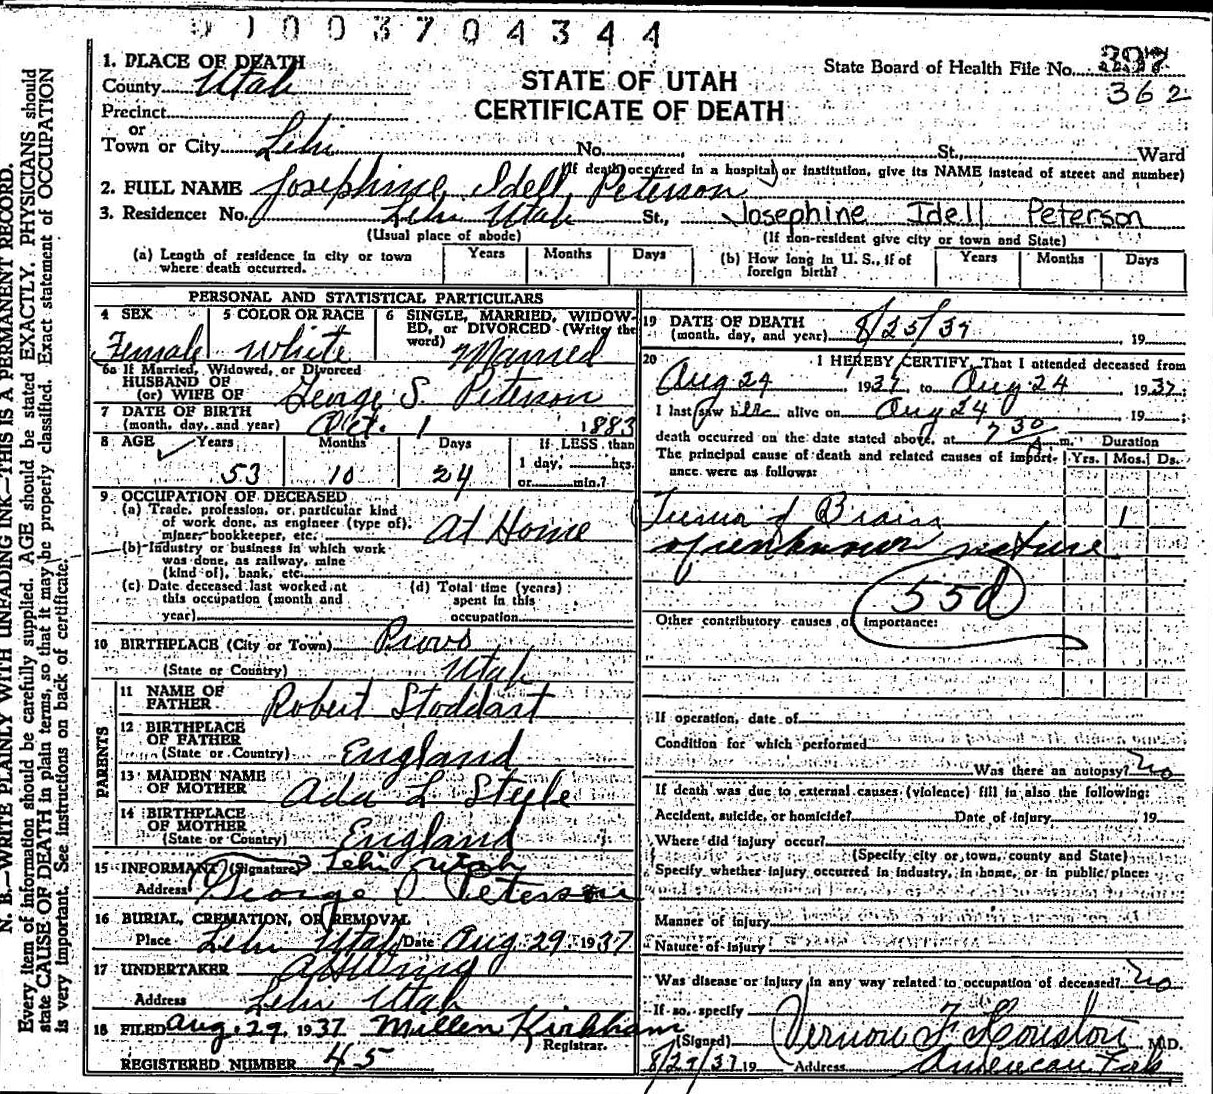 9 1 0 0 3 7 0 4 3 4 4
N. B.—WRITE PLAINLY WITH UNFADING INK—THIS IS A PERMANENT RECORD.
Every item of information should be carefully supplied. AGE should be stated EXACTLY. PHYSICIANS should
state CAUSE OF DEATH in plain terms, so that it may be properly classified. Exact statement of OCCUPATION
is very important. See instructions on back of certificate.
STATE OF UTAH
CERTIFICATE OF DEATH
State Board of Health File No.
362
1. PLACE OF DEATH
County Utah
Precinct
or
Town or City Lehi No. St., Ward
(If death occurred in a hospital or institution, give its NAME instead of street and number)
2. FULL NAME Josephine Idell Peterson
3. Residence: No. Lehi Utah St., Josephine Idell Peterson
(Usual place of abode) (If non-resident give city or town and State)
(a) Length of residence in city or town where death occurred. Years Months Days
(b) How long in U. S., if of foreign birth? Years Months Days
PERSONAL AND STATISTICAL PARTICULARS
4 SEX
Female
5 COLOR OR RACE
White
6 SINGLE, MARRIED, WIDOW-
ED, or DIVORCED (Write the
word) Married
6a If Married, Widowed, or Divorced
HUSBAND OF
(or) WIFE OF George S. Peterson
7 DATE OF BIRTH
(month, day, and year) Oct. 1 1883
8 AGE Years Months Days If LESS than
53 10 24 1 day, hrs.
or min.?
9 OCCUPATION OF DECEASED
(a) Trade, profession, or particular kind
of work done, as engineer (type of),
miner, bookkeeper, etc. At Home
(b) Industry or business in which work
was done, as railway, mine
(kind of), bank, etc.
(c) Date deceased last worked at
this occupation (month and
year)
(d) Total time (years)
spent in this
occupation
10 BIRTHPLACE (City or Town) Provo
(State or Country) Utah
PARENTS
11 NAME OF
FATHER Robert Stoddart
12 BIRTHPLACE
OF FATHER
(State or Country) England
13 MAIDEN NAME
OF MOTHER Ada L Steele
14 BIRTHPLACE
OF MOTHER
(State or Country) England
15 INFORMANT (Signature) Lehi Utah
Address George Peterson
16 BURIAL, CREMATION, OR REMOVAL
Place Lehi Utah Date Aug 29 1937
17 UNDERTAKER
Address Lehi Utah
18 FILED Aug. 29, 1937 Millen Kirkham
Registrar.
REGISTERED NUMBER 45
19 DATE OF DEATH
(month, day, and year) 8/25/37, 19
20 I HEREBY CERTIFY, That I attended deceased from
Aug 24 1937 to Aug 24 1937;
I last saw her alive on Aug 24 19 ;
death occurred on the date stated above, at 7 30 A m. Duration
The principal cause of death and related causes of import-
ance were as follows: Yrs. Mos. Ds.
Tumor of Brain 1
of unknown nature
55d
Other contributory causes of importance:
If operation, date of
Condition for which performed
Was there an autopsy? no
If death was due to external causes (violence) fill in also the following:
Accident, suicide, or homicide? Date of injury 19
Where did injury occur?
(Specify city or town, county and State)
Specify whether injury occurred in industry, in home, or in public place:
Manner of injury
Nature of injury
Was disease or injury in any way related to occupation of deceased? no
If so, specify
(Signed) Vernon F Houston, M.D.
8/29/37 19 Address American Fork